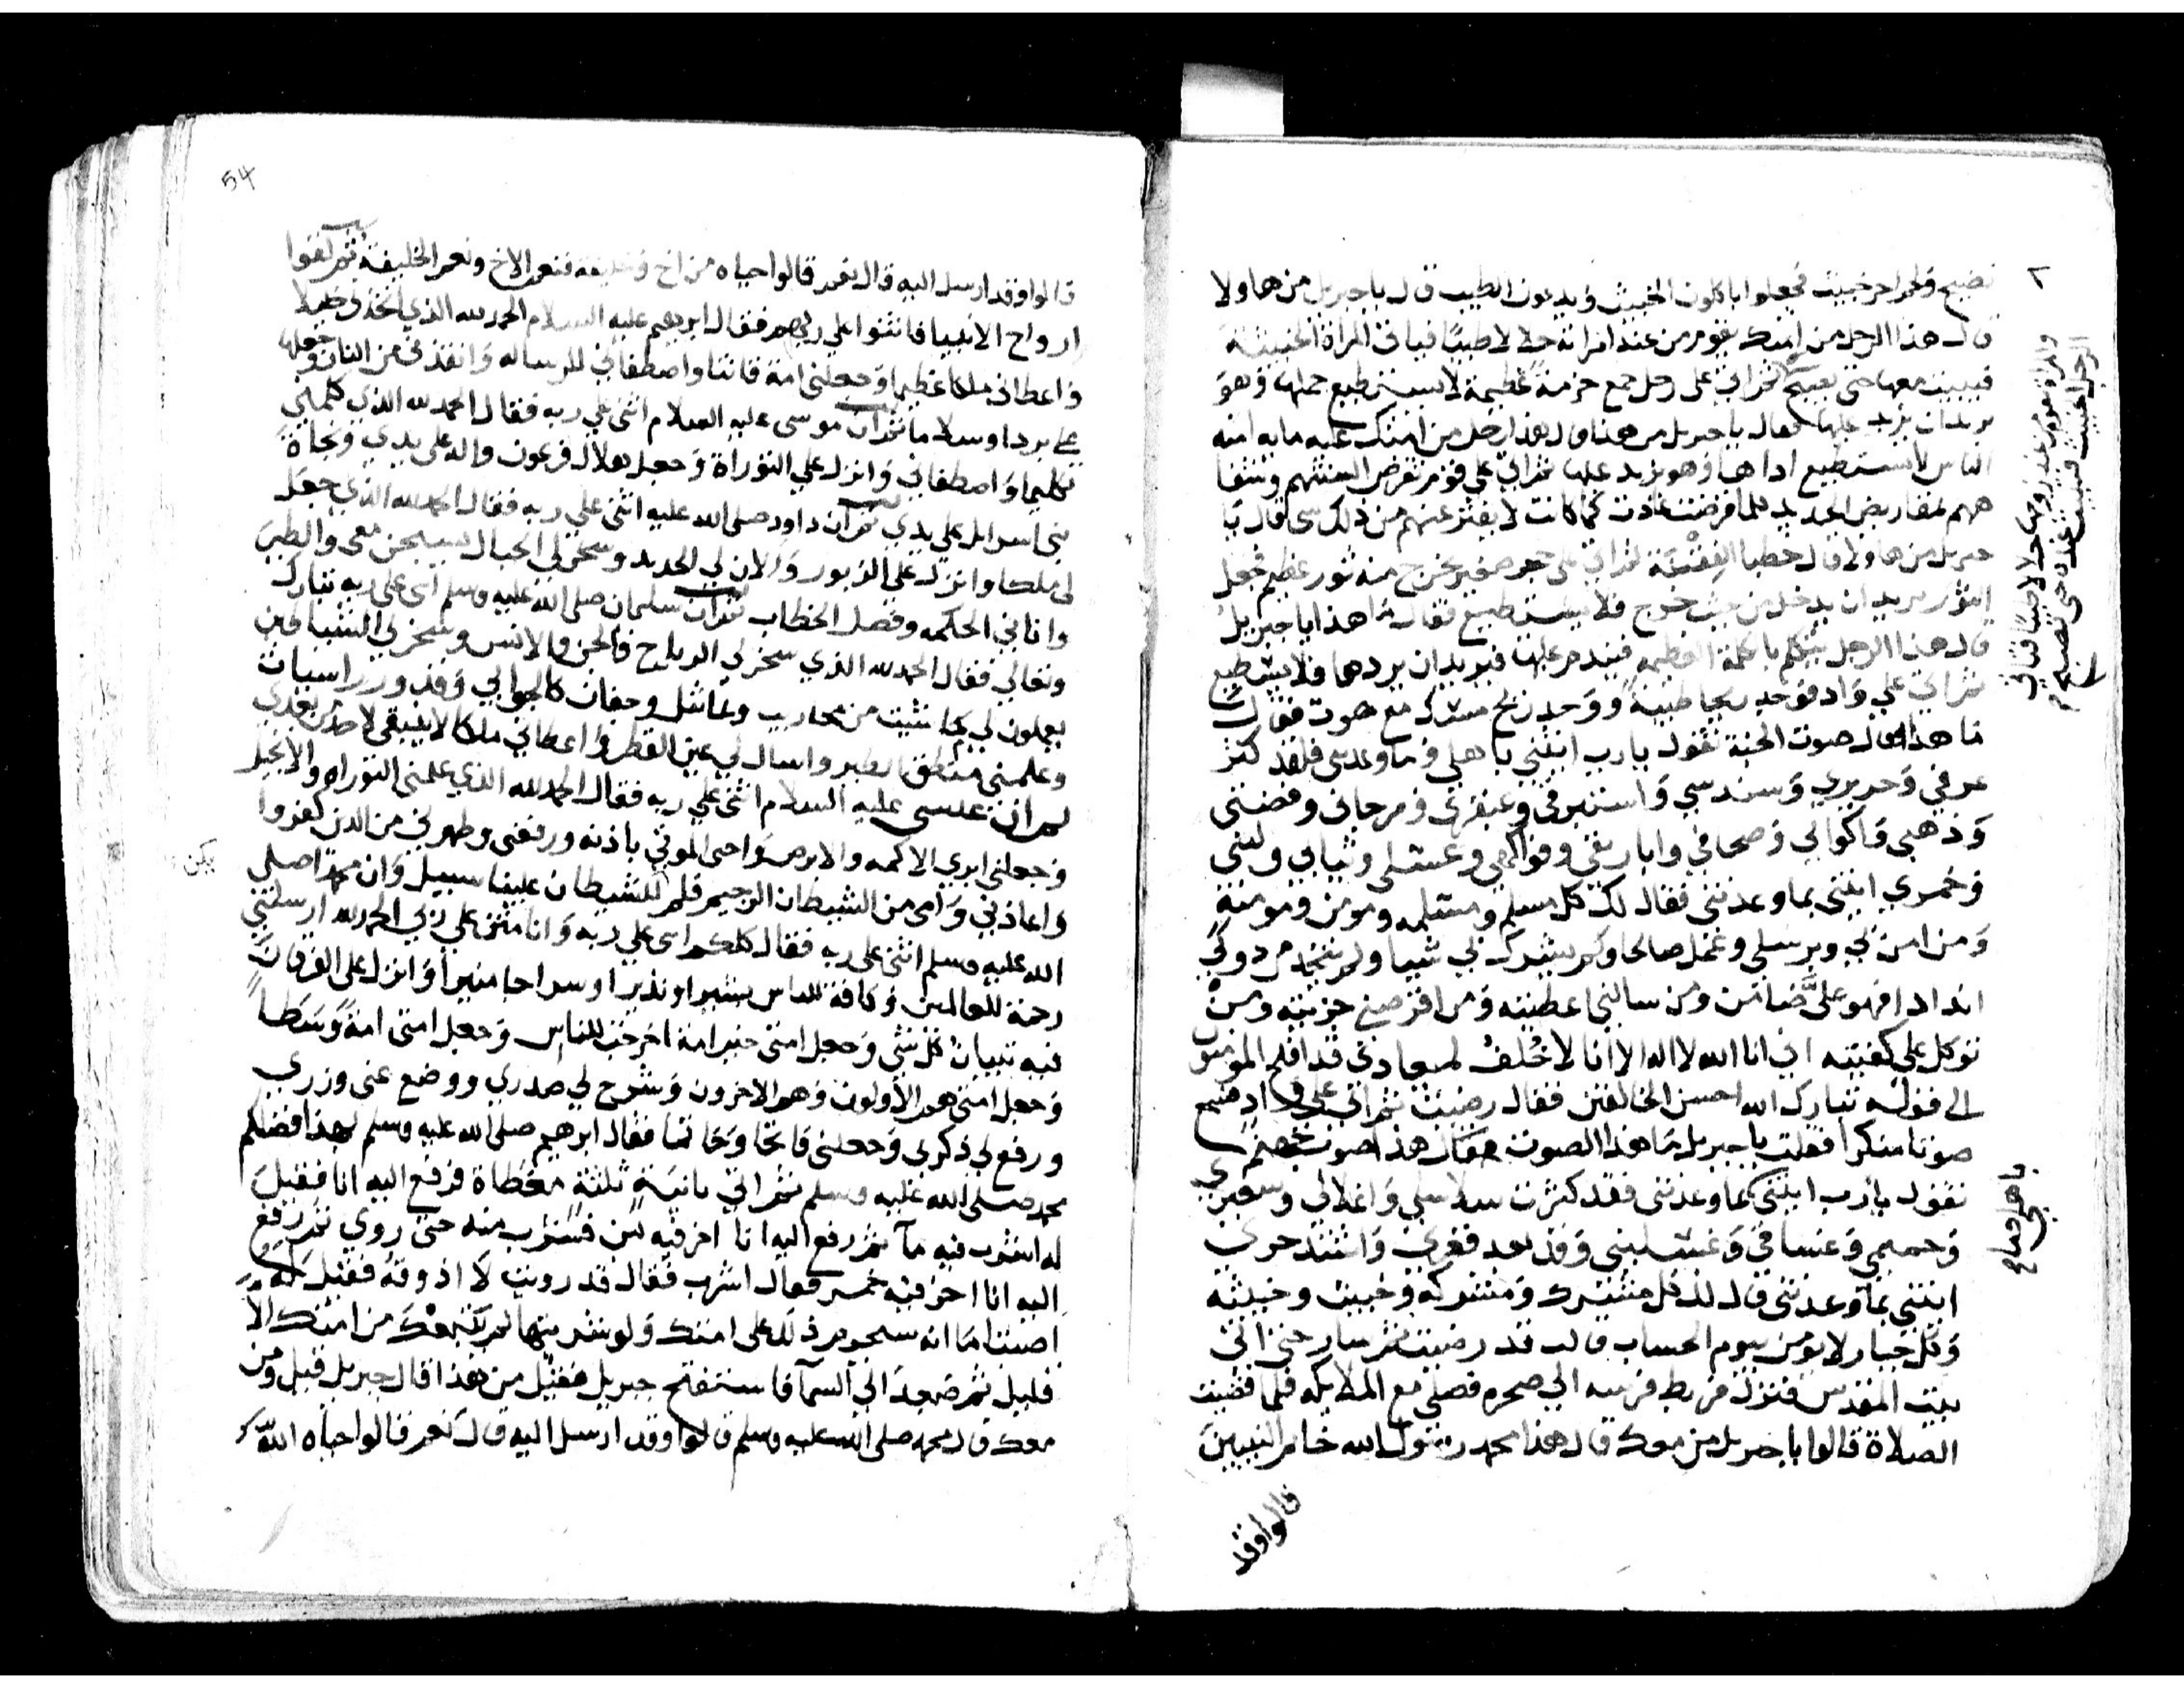 نضيج ولحم اخر خبيث فجعلوا ياكلون الخبيث ويدعون الطيب قال يا جبريل من هاولا
قال هذا الرجل من امتك يقوم من عند امراته حلالا طيبا فياتي المراة الخبيثة
فيبيت معها حتى يصبح ثم اتى على رجل جمع حزمة عظيمة لا يستطيع حملها وهو
يريد ان يزيد عليها فقال يا جبريل من هذا قال هذا رجل من امتك عليه مانه امنه
الناس لا يستطيع اداها وهو يزيد عليها ثم اتى على قوم تقرض السنتهم وشفا
ههم بمقاريض الحديد كلما قرضت عادت كما كانت لا يفتر عنهم من ذلك شي قال يا
جبريل من هاولا قال خطبا الفتنة ثم اتى على حجر صغير يخرج منه ثور عظيم فجعل
الثور يريد ان يدخل من حيث خرج فلا يستطيع فقال ما هذا يا جبريل
قال هذا الرجل يتكلم بالكلمة العظيمه فيندم عليها فيريد ان يردها فلا يستطيع
ثم اتى على واد فوجد ريحا طيبة ووجد ريح مسك مع صوت فقال
ما هذا قال صوت الجنة تقول يا رب ايتني باهلي وما وعدتني فلقد كثر
عرفي وحريري وسندسي واستبرقي وعبقري ومرجاني وفضتي
وذهبي واكوابي وصحافي واباريقي وفواكهي وعسلي وثيابي ولبني
وخمري ايتني بما وعدتني فقال لك كل مسلم ومسلمه ومومن ومومنة
ومن امن بي وبرسلي وعمل صالحا ولم يشرك بي شيا ولم يتخذ من دوني
اندادا فهو على ضامن ومن سالني اعطيته ومن اقرضني جزيته ومن
توكل علي كفيته اني انا الله لا اله الا انا لا خلف لميعادي قد افلح المومنون
الى قوله تبارك الله احسن الخالقين فقال رضيت ثم اتى على واد فسمع
صوتا منكرا فقلت يا جبريل ما هذا الصوت فقال هذا صوت جهنم
تقول يا رب ايتني بما وعدتني فقد كثرت سلاسلي واغلالي وسعيري
وحميمي وغساقي وغسليني وقد بعد قعري واشتد حري
ايتني بما وعدتني قال لك كل مشرك ومشركه وخبيث وخبيثه
وكل جبار لا يومن بيوم الحساب قالت قد رضيت ثم سار حتى اتى
بيت المقدس فنزل فربط فرسه الى صخره فصلى مع الملايكه فلما قضيت
الصلاة قالوا يا جبريل من معك قال هذا محمد رسول الله خاتم النبيين
قالوا وقد
والمراة تقوم من عند زوجها حلالا طيبا فتاتي
الرجل الخبيث فتبيت عنده حتى تصبح
باهلي
54
قالوا وقد ارسل اليه قال نعم قالوا حياه من اخ وخليفه فنعم الاخ ونعم الخليفة ثم لقوا
ارواح الانبيا فاثنوا على ربهم فقال ابرهيم عليه السلام الحمد لله الذي اتخذني خليلا
واعطاني ملكا عظيما وجعلني امة قانتا واصطفاني للرساله وانقذني من النار وجعلها
علي بردا وسلاما ثم ان موسى عليه السلام اثنى على ربه فقال الحمد لله الذي كلمني
تكليما واصطفاني وانزل علي التوراة وجعل هلاك فرعون واله على يدي ونجاة
بني اسرايل على يدي ثم ان داود صلى الله عليه اثنى على ربه فقال الحمد لله الذي جعل
لي ملكا وانزل علي الزبور والان لي الحديد وسخر لي الجبال يسبحن معي والطير
واتاني الحكمه وفصل الخطاب ثم ان سليمان صلى الله عليه وسلم اثنى على ربه تبارك
وتعالى فقال الحمد لله الذي سخر لي الرياح والجن والانس وسخر لي الشياطين
يعملون لي ما شيت من محاريب وتماثيل وجفان كالجوابي وقدور راسيات
وعلمني منطق الطير واسال لي عين القطر واعطاني ملكا لا ينبغي لاحد من بعدي
ثم ان عيسى عليه السلام اثنى على ربه فقال الحمد لله الذي علمني التوراه والانجيل
وجعلني ابري الاكمه والابرص واحي الموتى باذنه ورفعني وطهرني من الذين كفروا
واعاذني وامي من الشيطان الرجيم فلم للشيطان علينا سبيل وان محمدا صلى
يكن
الله عليه وسلم اثنى على ربه فقال كلكم اثنى على ربه وانا مثن على ربي الحمد لله ارسلني
رحمة للعالمين وكافة للناس بشيرا ونذيرا وسراجا منيرا وانزل علي الفرقان
فيه تبيان كل شي وجعل امتي خير امة اخرجت للناس وجعل امتي امة وسطا
وجعل امتي هم الاولون وهم الاخرون وشرح لي صدري ووضع عني وزري
ورفع لي ذكري وجعلني فاتحا وخاتما فقال ابرهيم صلى الله عليه وسلم بهذا فضلكم
محمد صلى الله عليه وسلم ثم اتي بانية ثلثة مغطاة فرفع اليه انا فقيل
له اشرب فيه ما ثم رفع اليه انا اخر فيه لبن فشرب منه حتى روي ثم رفع
اليه انا اخر فيه خمر فقال اشرب فقال قد رويت لا اذوقه فقيل له
اصبت اما انه سيحرم ذلك على امتك ولو شربتها لم يتبعك من امتك الا
قليل ثم صعد الى السما فاستفتح جبريل فقيل من هذا قال جبريل قيل ومن
معك قال محمد صلى الله عليه وسلم قالوا وقد ارسل اليه قال نعم قالوا حياه الله